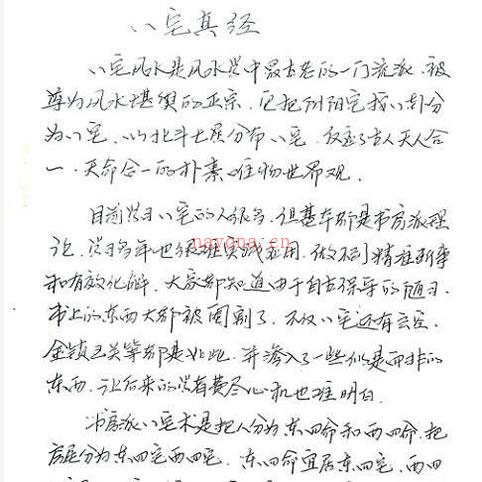 八宅真经
八宅风水是风水学中最古老的一门流派，被
尊为风水堪舆的正宗，它把阴阳宅按八卦分
为八宅，以北斗七星分布八宅，反应了古人天人合
一，天命合一的朴素唯物世界观。
目前学习八宅的人很多，但基本都是书房派理
论，学习多年也很难实践应用，做不到精准断事
和有效化解，大家都知道由于自古保守的陋习，
书上的东西大都被阉割了，不仅八宅还有玄空、
金锁玉关等都是如此，并掺入了一些似是而非的
东西，让后来的学者费尽心机也难明白。
书房派八宅术是把人分为东四命和西四命，把
房屋分为东四宅西四宅，东四命宜居东四宅，西四
nayona.cn